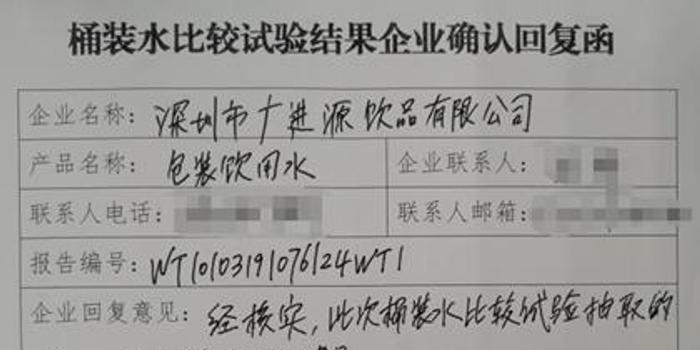 桶装水比较试验结果企业确认回复函
企业名称：深圳市广进源饮品有限公司
产品名称：包装饮用水 企业联系人：
联系人电话： 联系人邮箱：
报告编号：WT10103191076124WT1
企业回复意见：经核实，此次桶装水比较试验抽取的